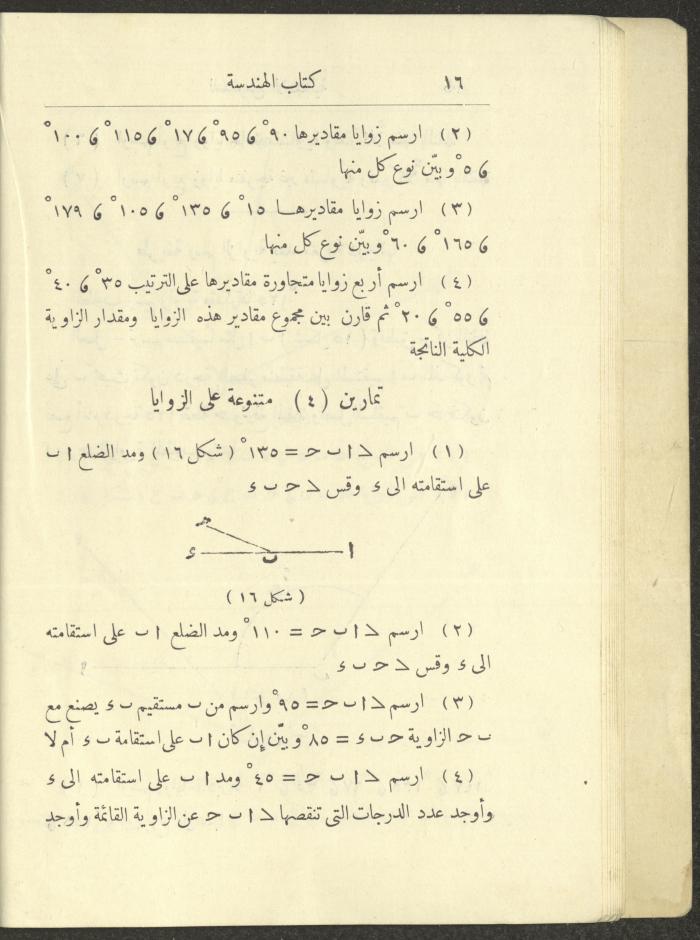 ١٦ كتاب الهندسة
(٢) ارسم زوايا مقاديرها ٩٠° ၆ ٩٥° ၆ ١٧° ၆ ١١٥° ၆ ١٠٠°
၆ ٥° وبيّن نوع كل منها
(٣) ارسم زوايا مقاديرهـا ١٥° ၆ ١٣٥° ၆ ١٠٥° ၆ ١٧٩°
၆ ١٦٥° ၆ ٦٠° وبيّن نوع كل منها
(٤) ارسم أربع زوايا متجاورة مقاديرها على الترتيب ٣٥° ၆ ٤٠°
၆ ٥٥° ၆ ٢٠° ثم قارن بين مجموع مقادير هذه الزوايا ومقدار الزاوية
الكلية الناتجة
تمارين (٤) متنوعة على الزوايا
(١) ارسم > ا ٮ حـ = ١٣٥° (شكل ١٦) ومد الضلع ا ٮ
على استقامته الى ء وقس > حـ ٮ ء
حـ
ء ٮ ا
(شكل ١٦)
(٢) ارسم > ا ٮ حـ = ١١٠° ومد الضلع ا ٮ على استقامته
الى ء وقس > حـ ٮ ء
(٣) ارسم > ا ٮ حـ = ٩٥° وارسم من ٮ مستقيم ٮ ء يصنع مع
ٮ حـ الزاوية حـ ٮ ء = ٨٥° وبيّن إن كان ا ٮ على استقامة ٮ ء أم لا
(٤) ارسم > ا ٮ حـ = ٤٥° ومد ا ٮ على استقامته الى ء
وأوجد عدد الدرجات التى تنقصها > ا ٮ حـ عن الزاوية القائمة وأوجد